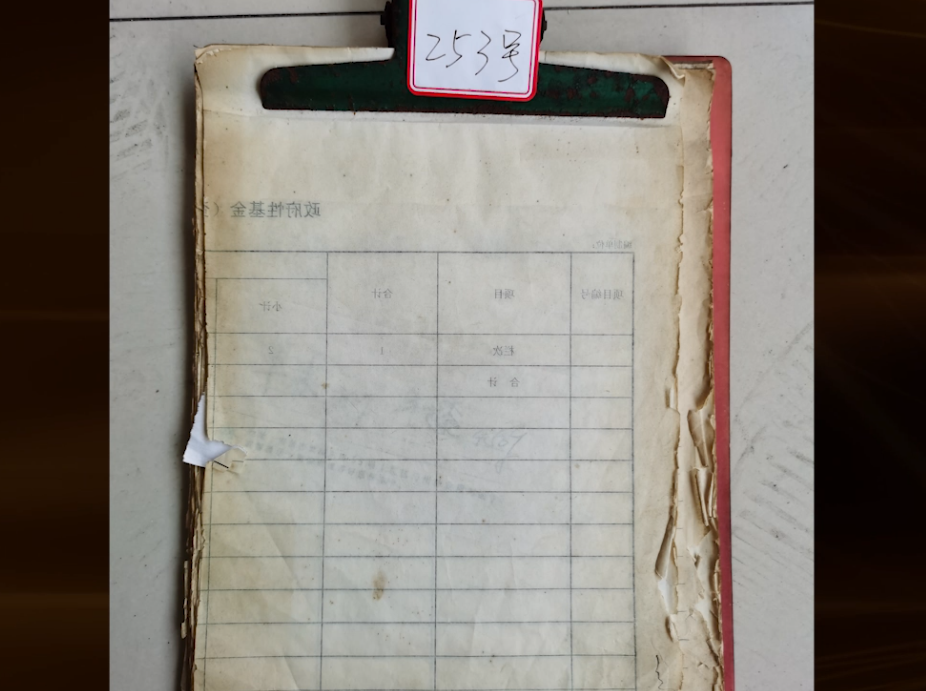 253号
政府性基金（
编制单位：
项目编号 项目 合计 小计
栏次 1 2
合计